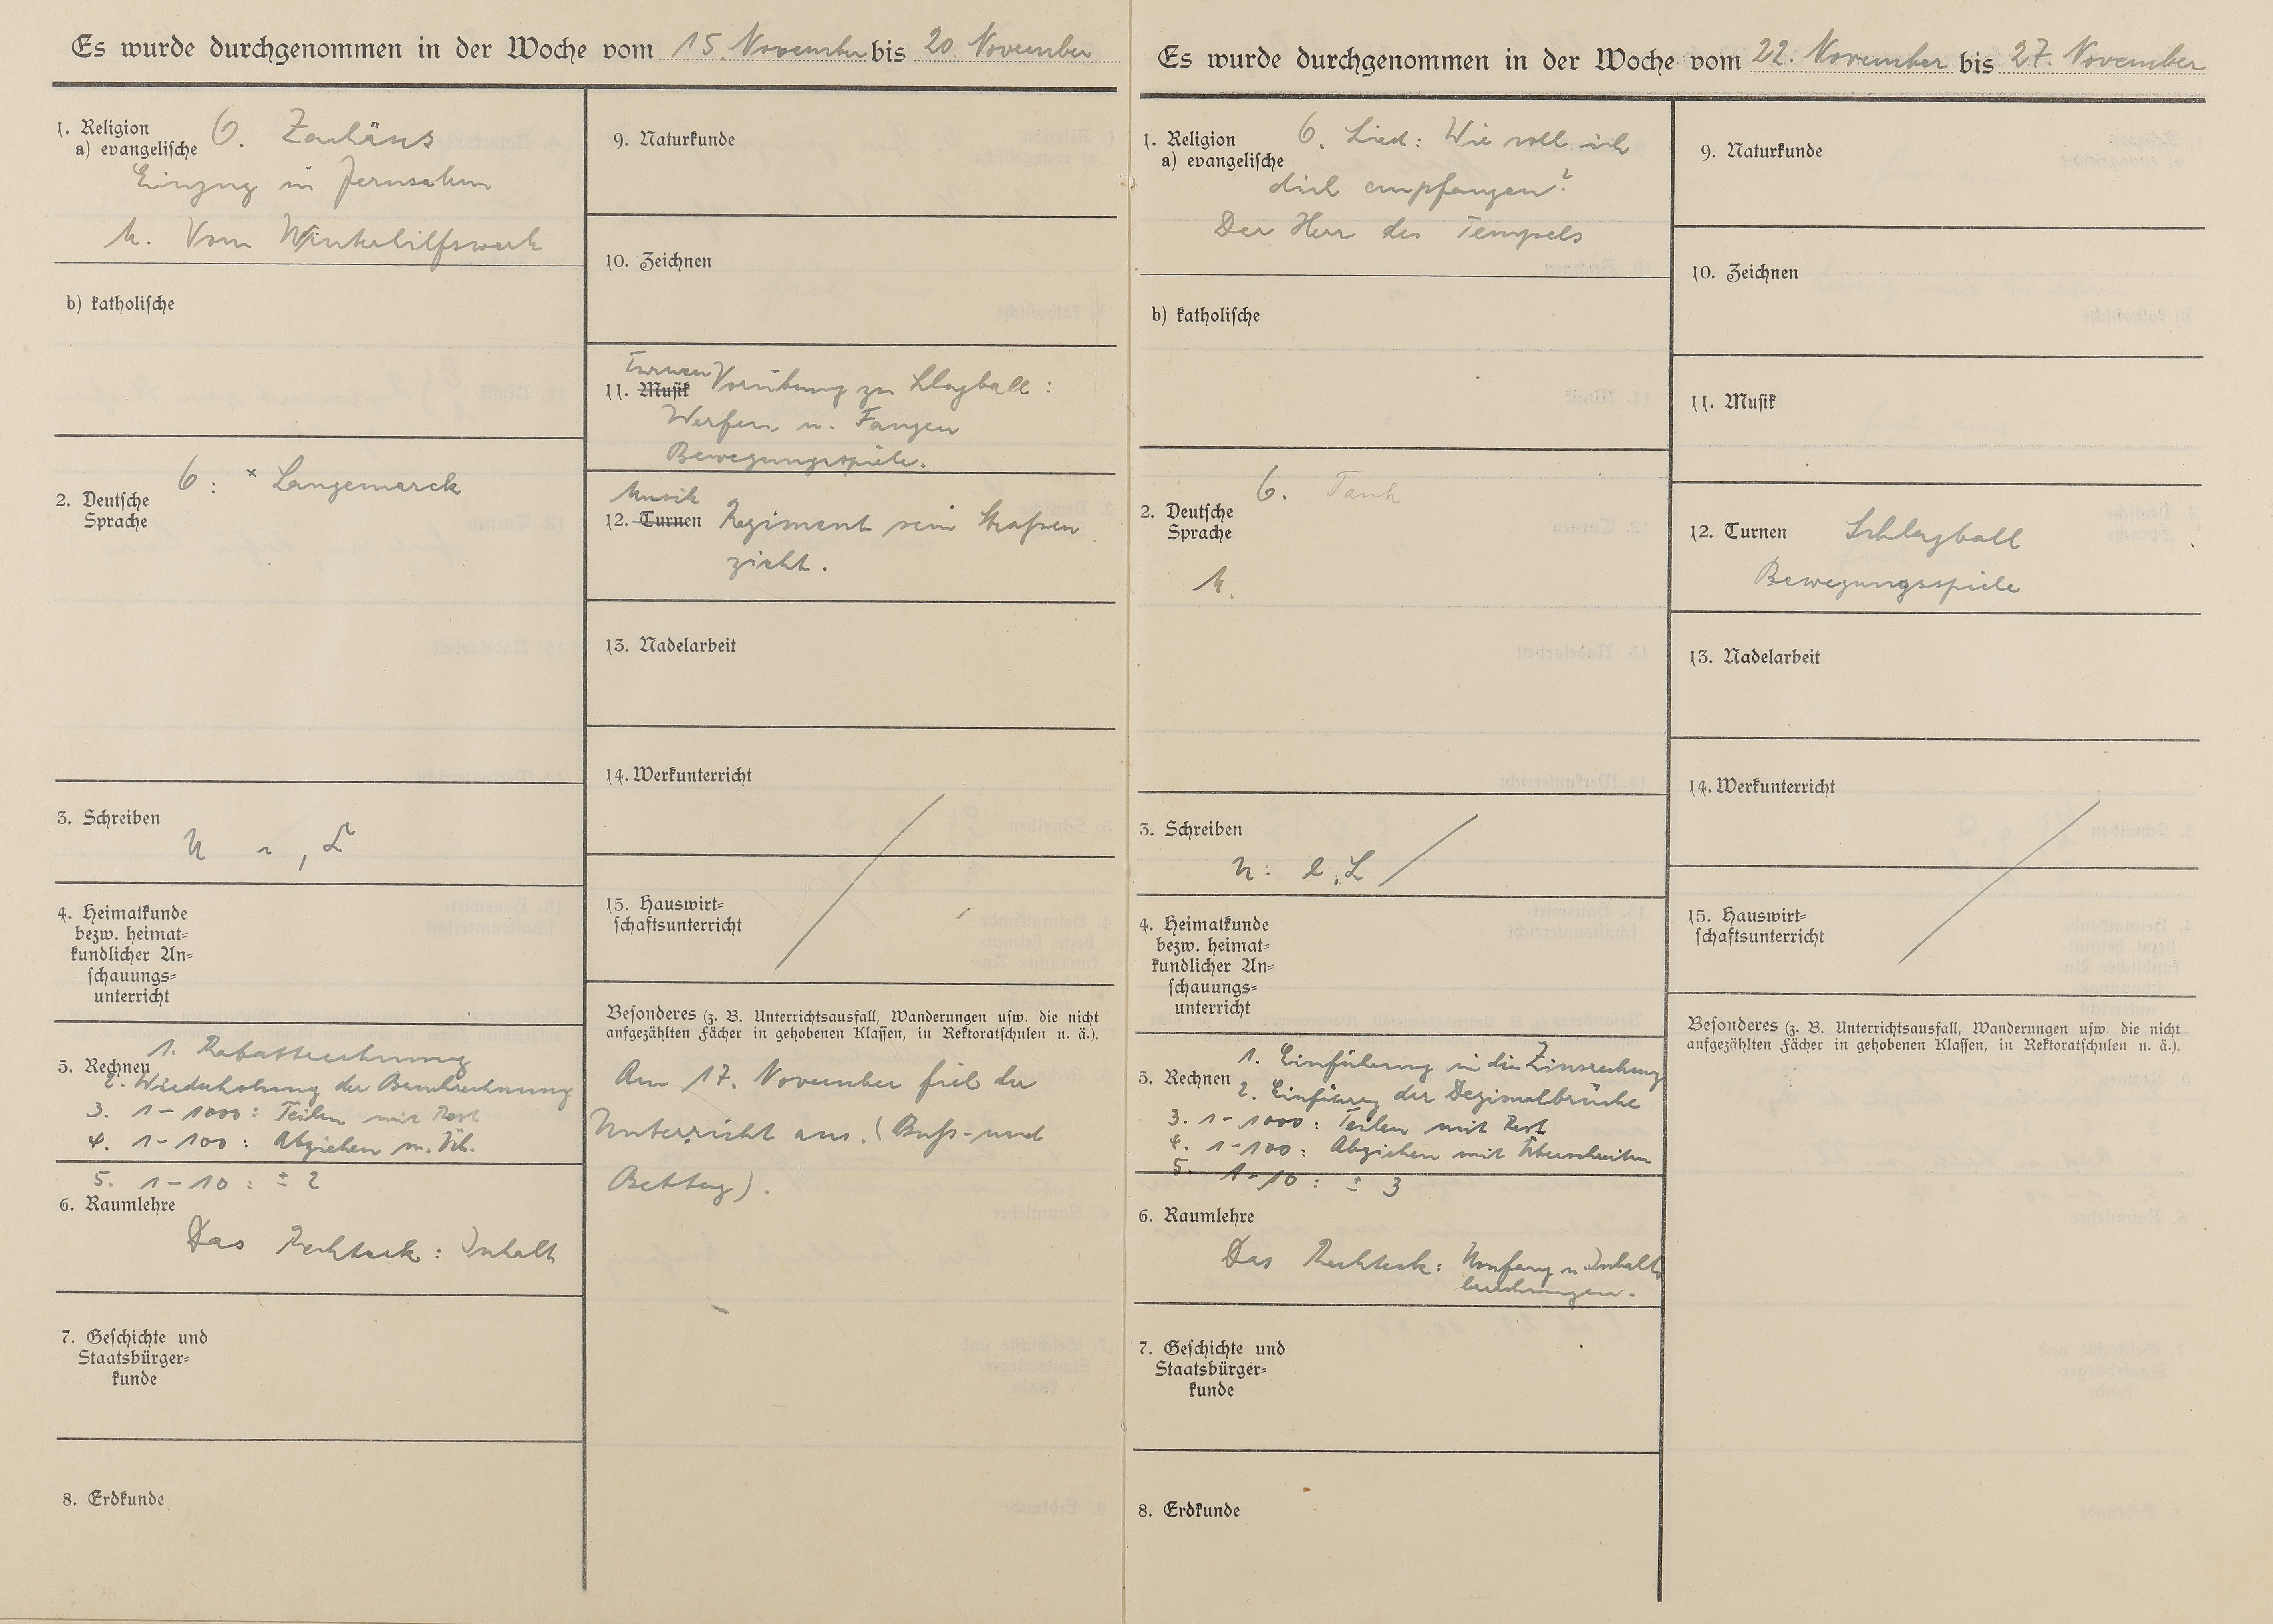 Es wurde durchgenommen in der Woche vom 15. November bis 20. November
1. Religion
a) evangelische
O. Zachäus
Einzug in Jerusalem
U. Vom Winterhilfswerk
b) katholische
2. Deutsche
Sprache
O: × Langemarck
3. Schreiben
U
4. Heimatkunde
bezw. heimat=
kundlicher An=
schauungs=
unterricht
5. Rechnen
1. Rabattrechnung
2. Wiederholung der Bruchrechnung
3. 1-1000: Teilen mit Rest
4. 1-100: Abziehen m. Üb.
5. 1-10: ± 2
6. Raumlehre
Das Rechteck: Inhalt
7. Geschichte und
Staatsbürger=
kunde
8. Erdkunde
9. Naturkunde
10. Zeichnen
Turnen
11. Musik Vorübung zu Schlagball:
Werfen u. Fangen
Bewegungsspiele.
Musik
12. Turnen Regiment sein Straßen
zieht.
13. Nadelarbeit
14. Werkunterricht
15. Hauswirt=
schaftsunterricht
Besonderes (z. B. Unterrichtsausfall, Wanderungen usw. die nicht
aufgezählten Fächer in gehobenen Klassen, in Rektoratschulen u. ä.).
Am 17. November fiel der
Unterricht aus. (Buß- und
Bettag).
Es wurde durchgenommen in der Woche vom 22. November bis 27. November
1. Religion
a) evangelische
O. Lied: Wie soll ich
dich empfangen?
Der Herr des Tempels
b) katholische
2. Deutsche
Sprache
O. Tank
U.
3. Schreiben
U: l, L
4. Heimatkunde
bezw. heimat=
kundlicher An=
schauungs=
unterricht
5. Rechnen
1. Einführung in die Zinsrechnung
2. Einführung der Dezimalbrüche
3. 1-1000: Teilen mit Rest
4. 1-100: Abziehen mit Überschreiten
5. 1-10: ± 3
6. Raumlehre
Das Rechteck: Umfang u. Inhalts
berechnungen.
7. Geschichte und
Staatsbürger=
kunde
8. Erdkunde
9. Naturkunde
10. Zeichnen
11. Musik
12. Turnen Schlagball
Bewegungsspiele
13. Nadelarbeit
14. Werkunterricht
15. Hauswirt=
schaftsunterricht
Besonderes (z. B. Unterrichtsausfall, Wanderungen usw. die nicht
aufgezählten Fächer in gehobenen Klassen, in Rektoratschulen u. ä.).